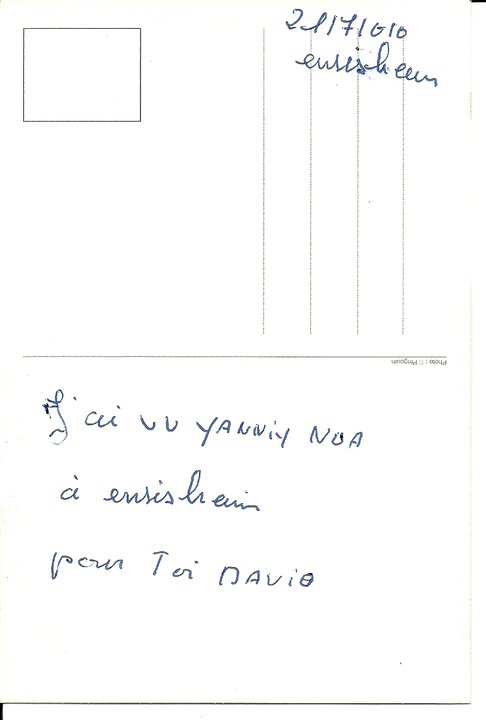 21/7/010
ensisheim
Photo : © Pinguin
J'ai vu YANNiy NOA
à ensisheim
pour Toi DAViD